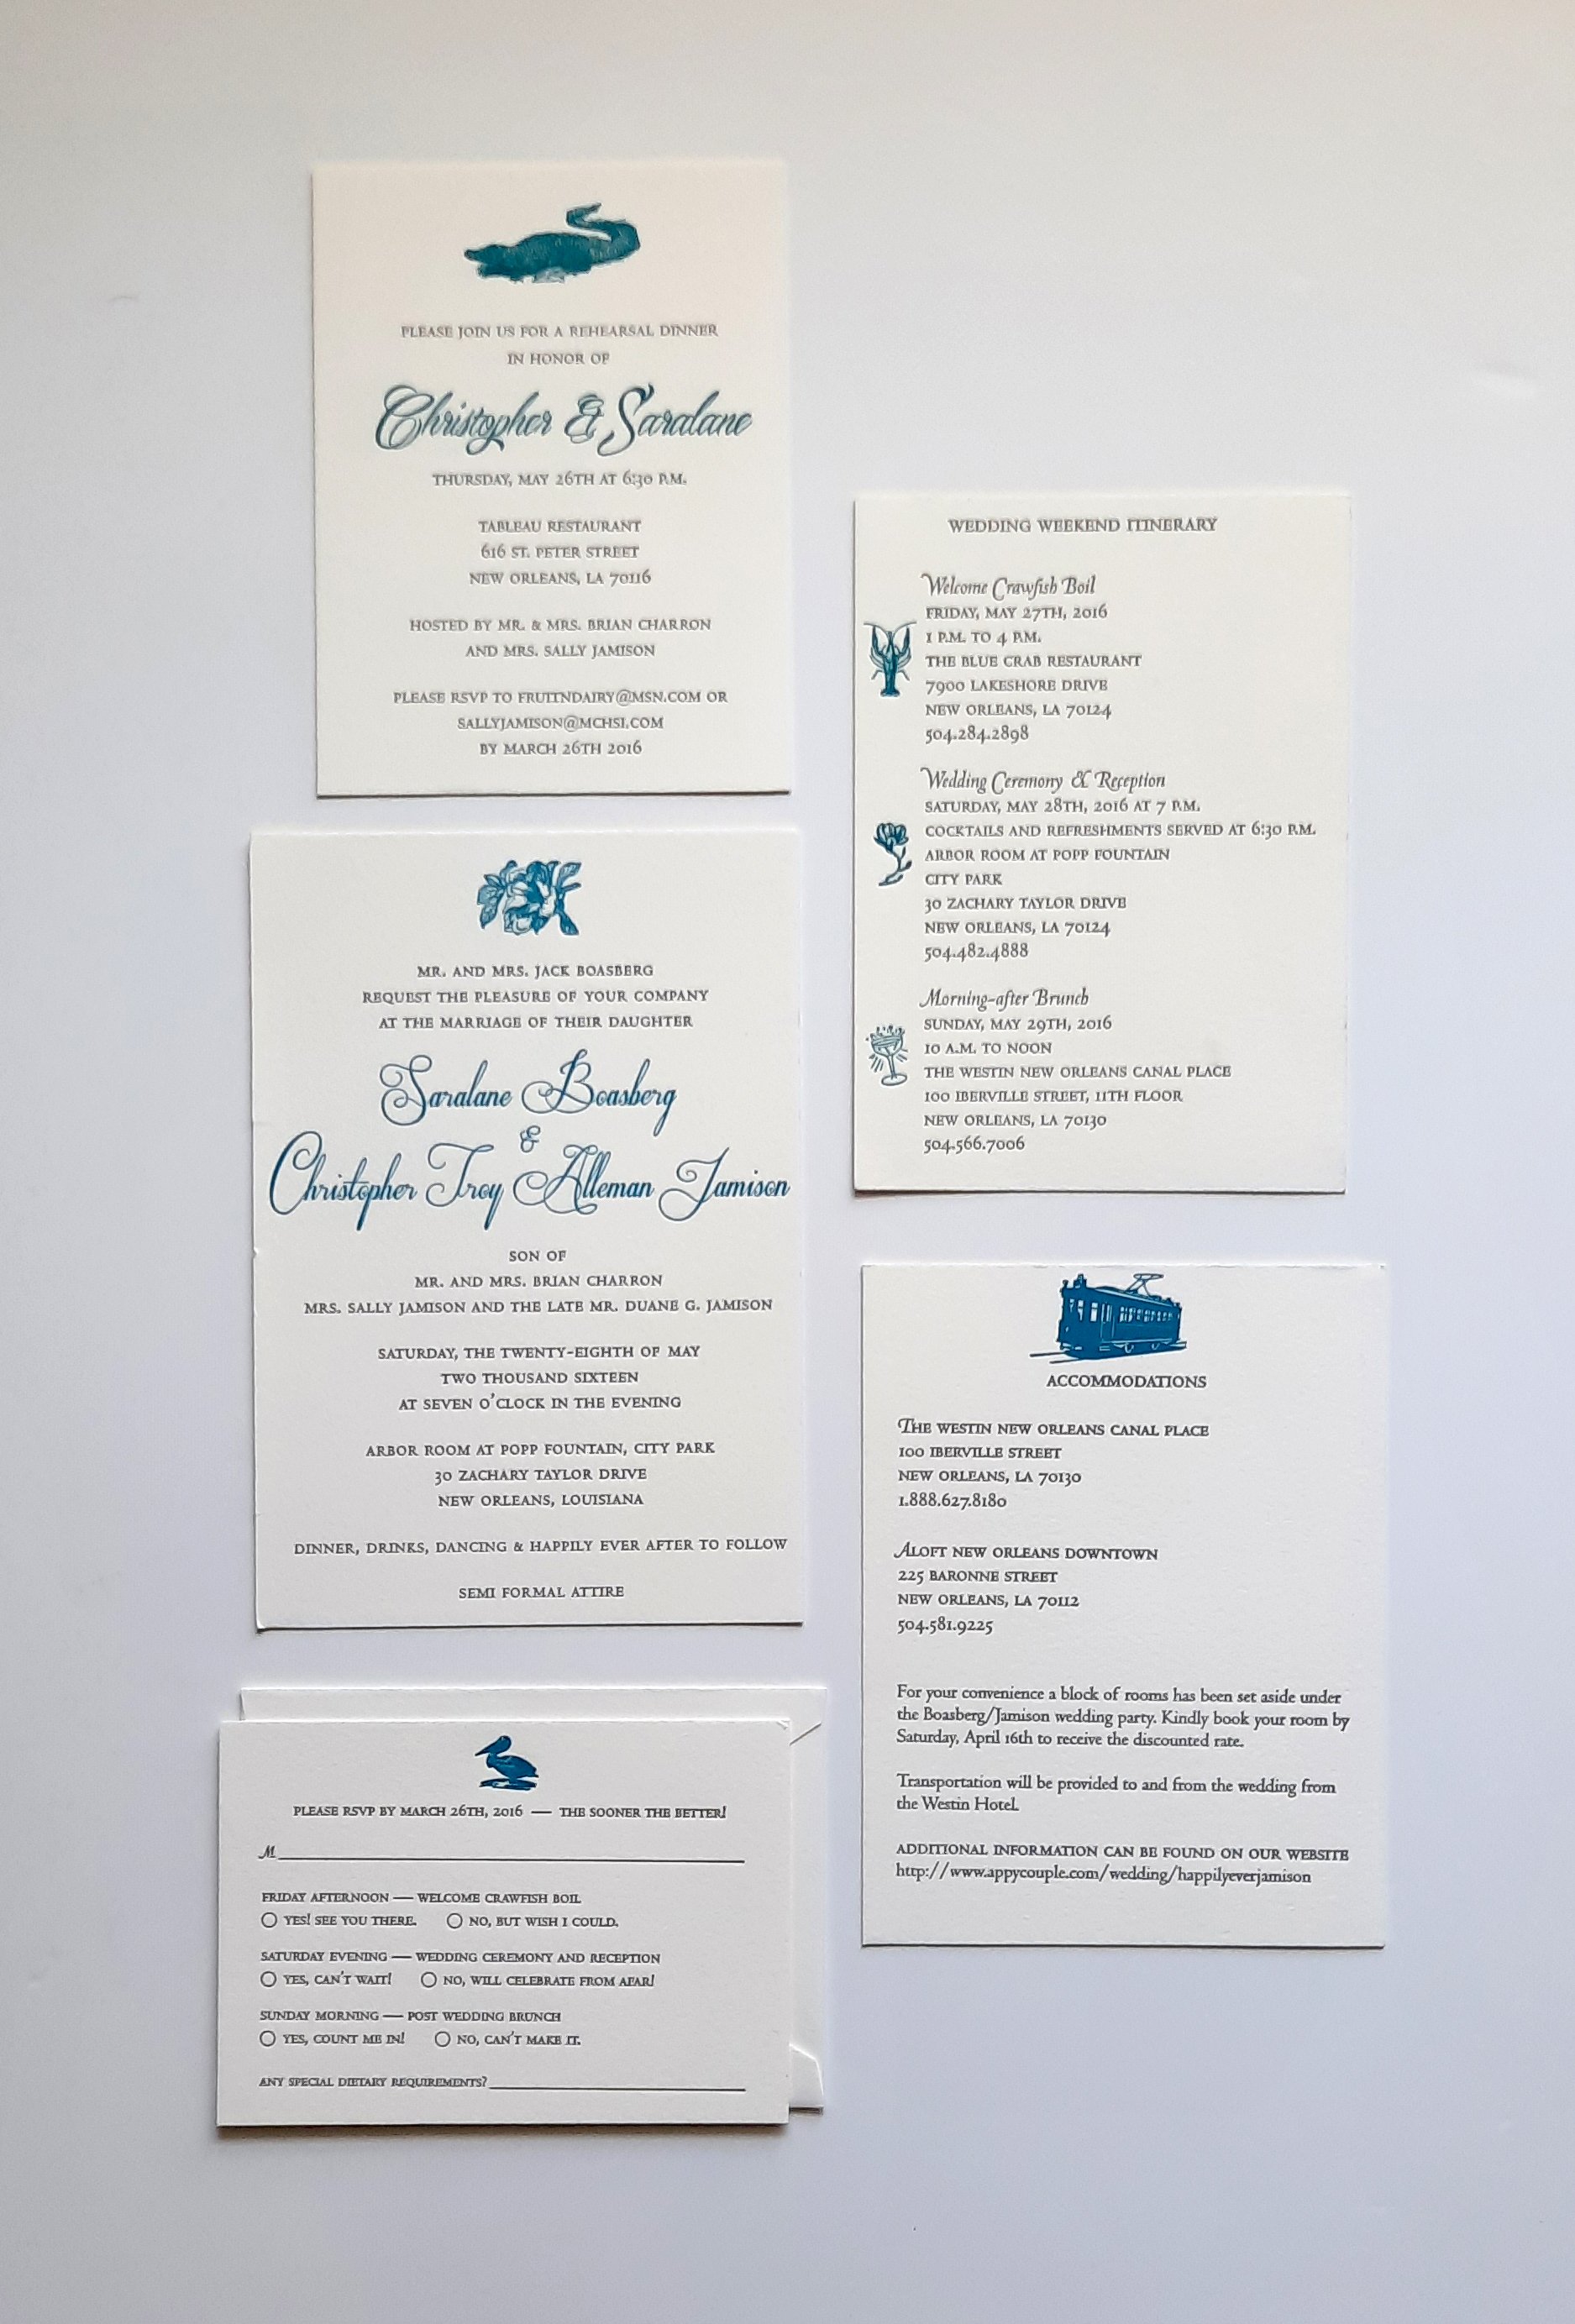 PLEASE JOIN US FOR A REHEARSAL DINNER
IN HONOR OF
Christopher & Saralane
THURSDAY, MAY 26TH AT 6:30 P.M.
TABLEAU RESTAURANT
616 ST. PETER STREET
NEW ORLEANS, LA 70116
HOSTED BY MR. & MRS. BRIAN CHARRON
AND MRS. SALLY JAMISON
PLEASE RSVP TO FRUITNDAIRY@MSN.COM OR
SALLYJAMISON@MCHSI.COM
BY MARCH 26TH 2016
MR. AND MRS. JACK BOASBERG
REQUEST THE PLEASURE OF YOUR COMPANY
AT THE MARRIAGE OF THEIR DAUGHTER
Saralane Boasberg
&
Christopher Troy Alleman Jamison
SON OF
MR. AND MRS. BRIAN CHARRON
MRS. SALLY JAMISON AND THE LATE MR. DUANE G. JAMISON
SATURDAY, THE TWENTY-EIGHTH OF MAY
TWO THOUSAND SIXTEEN
AT SEVEN O'CLOCK IN THE EVENING
ARBOR ROOM AT POPP FOUNTAIN, CITY PARK
30 ZACHARY TAYLOR DRIVE
NEW ORLEANS, LOUISIANA
DINNER, DRINKS, DANCING & HAPPILY EVER AFTER TO FOLLOW
SEMI FORMAL ATTIRE
PLEASE RSVP BY MARCH 26TH, 2016 — THE SOONER THE BETTER!
M
FRIDAY AFTERNOON — WELCOME CRAWFISH BOIL
YES! SEE YOU THERE. NO, BUT WISH I COULD.
SATURDAY EVENING — WEDDING CEREMONY AND RECEPTION
YES, CAN'T WAIT! NO, WILL CELEBRATE FROM AFAR!
SUNDAY MORNING — POST WEDDING BRUNCH
YES, COUNT ME IN! NO, CAN'T MAKE IT.
ANY SPECIAL DIETARY REQUIREMENTS?
WEDDING WEEKEND ITINERARY
Welcome Crawfish Boil
FRIDAY, MAY 27TH, 2016
1 P.M. TO 4 P.M.
THE BLUE CRAB RESTAURANT
7900 LAKESHORE DRIVE
NEW ORLEANS, LA 70124
504.284.2898
Wedding Ceremony & Reception
SATURDAY, MAY 28TH, 2016 AT 7 P.M.
COCKTAILS AND REFRESHMENTS SERVED AT 6:30 P.M.
ARBOR ROOM AT POPP FOUNTAIN
CITY PARK
30 ZACHARY TAYLOR DRIVE
NEW ORLEANS, LA 70124
504.482.4888
Morning-after Brunch
SUNDAY, MAY 29TH, 2016
10 A.M. TO NOON
THE WESTIN NEW ORLEANS CANAL PLACE
100 IBERVILLE STREET, 11TH FLOOR
NEW ORLEANS, LA 70130
504.566.7006
ACCOMMODATIONS
THE WESTIN NEW ORLEANS CANAL PLACE
100 IBERVILLE STREET
NEW ORLEANS, LA 70130
1.888.627.8180
ALOFT NEW ORLEANS DOWNTOWN
225 BARONNE STREET
NEW ORLEANS, LA 70112
504.581.9225
For your convenience a block of rooms has been set aside under
the Boasberg/Jamison wedding party. Kindly book your room by
Saturday, April 16th to receive the discounted rate.
Transportation will be provided to and from the wedding from
the Westin Hotel.
ADDITIONAL INFORMATION CAN BE FOUND ON OUR WEBSITE
http://www.appycouple.com/wedding/happilyeverjamison